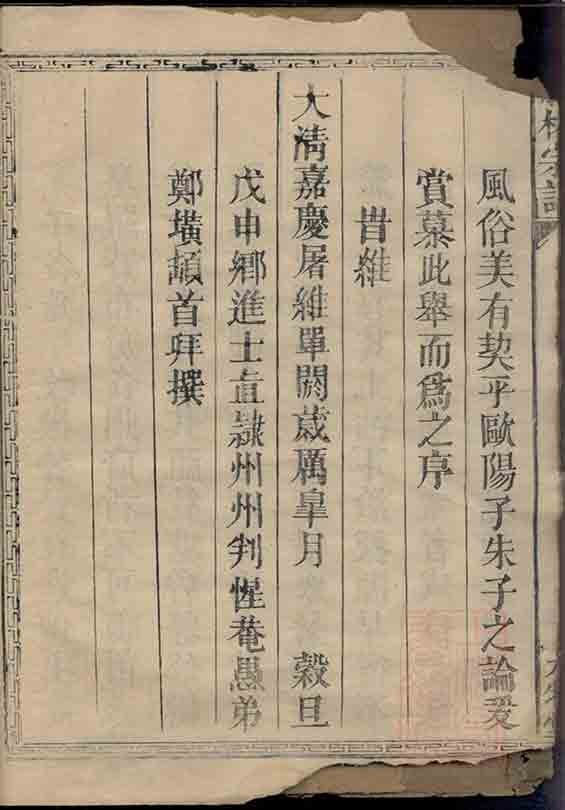 風俗美有契乎歐陽子朱子之論爰
賞慕此舉而為之序
昔維
大清嘉慶屠維單閼歲厲皐月 穀旦
戊申鄉進士直隸州州判惺菴愚弟
鄭墴頓首拜撰